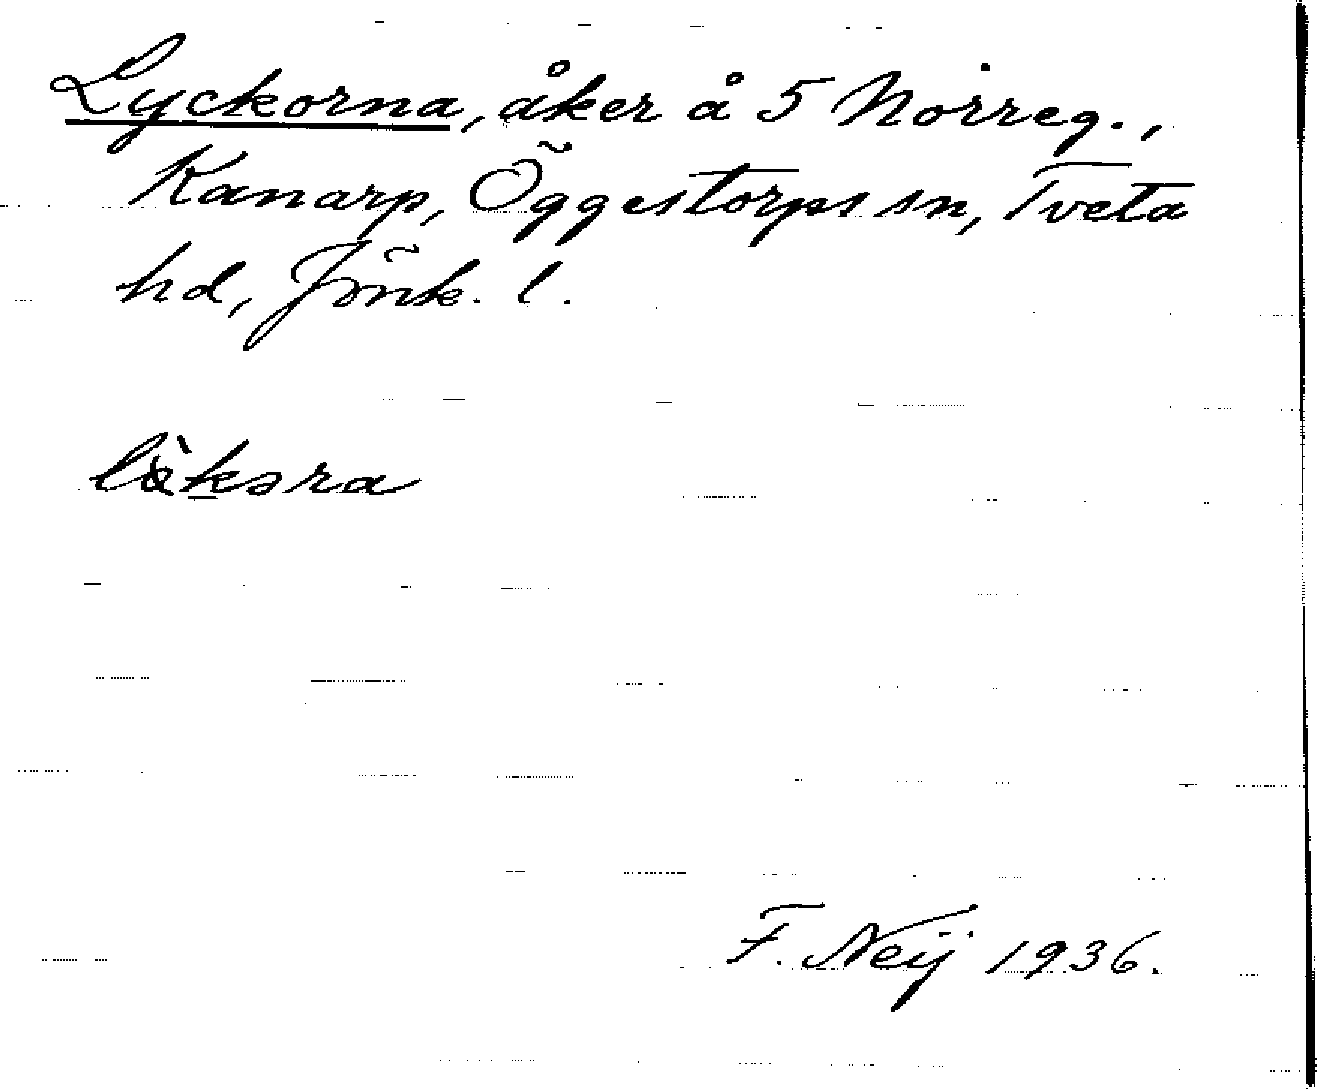 Lyckorna, åker å 5 Norreg.,
Kanarp, Öggestorps sn, Tveta
hd, Jönk. l.
lö̀kəra
F. Neij 1936.